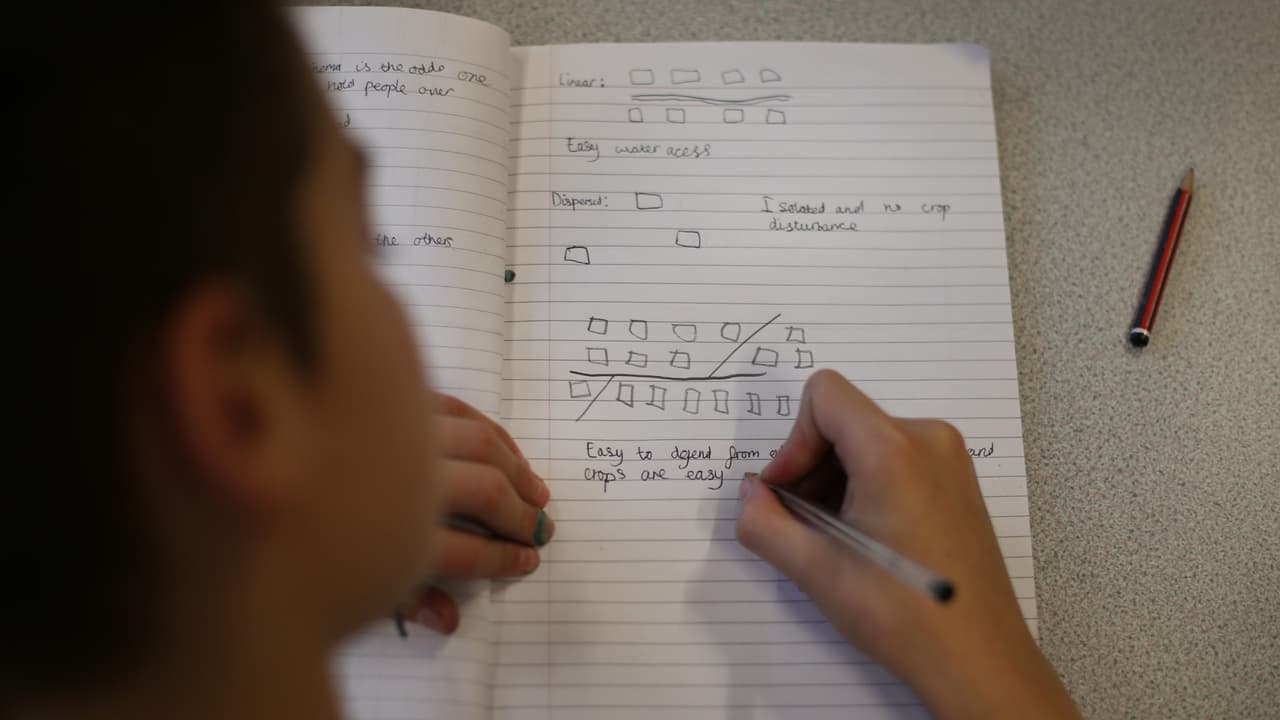 is the odds one
hold people over
the others
Linear:
Easy water acess
Dispersed:
Isolated and no crop
disturbance
Easy to defend from
and
crops are easy